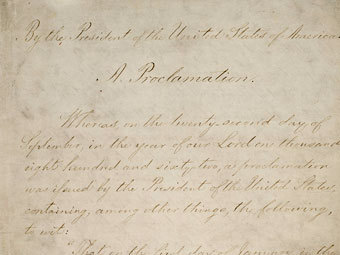 By the President of the United States of America
A Proclamation.
Whereas, on the twenty-second day of
September, in the year of our Lord one thousand
eight hundred and sixty two, a proclamation
was issued by the President of the United States,
containing, among other things, the following,
to wit:
"That on the first day of January, in the